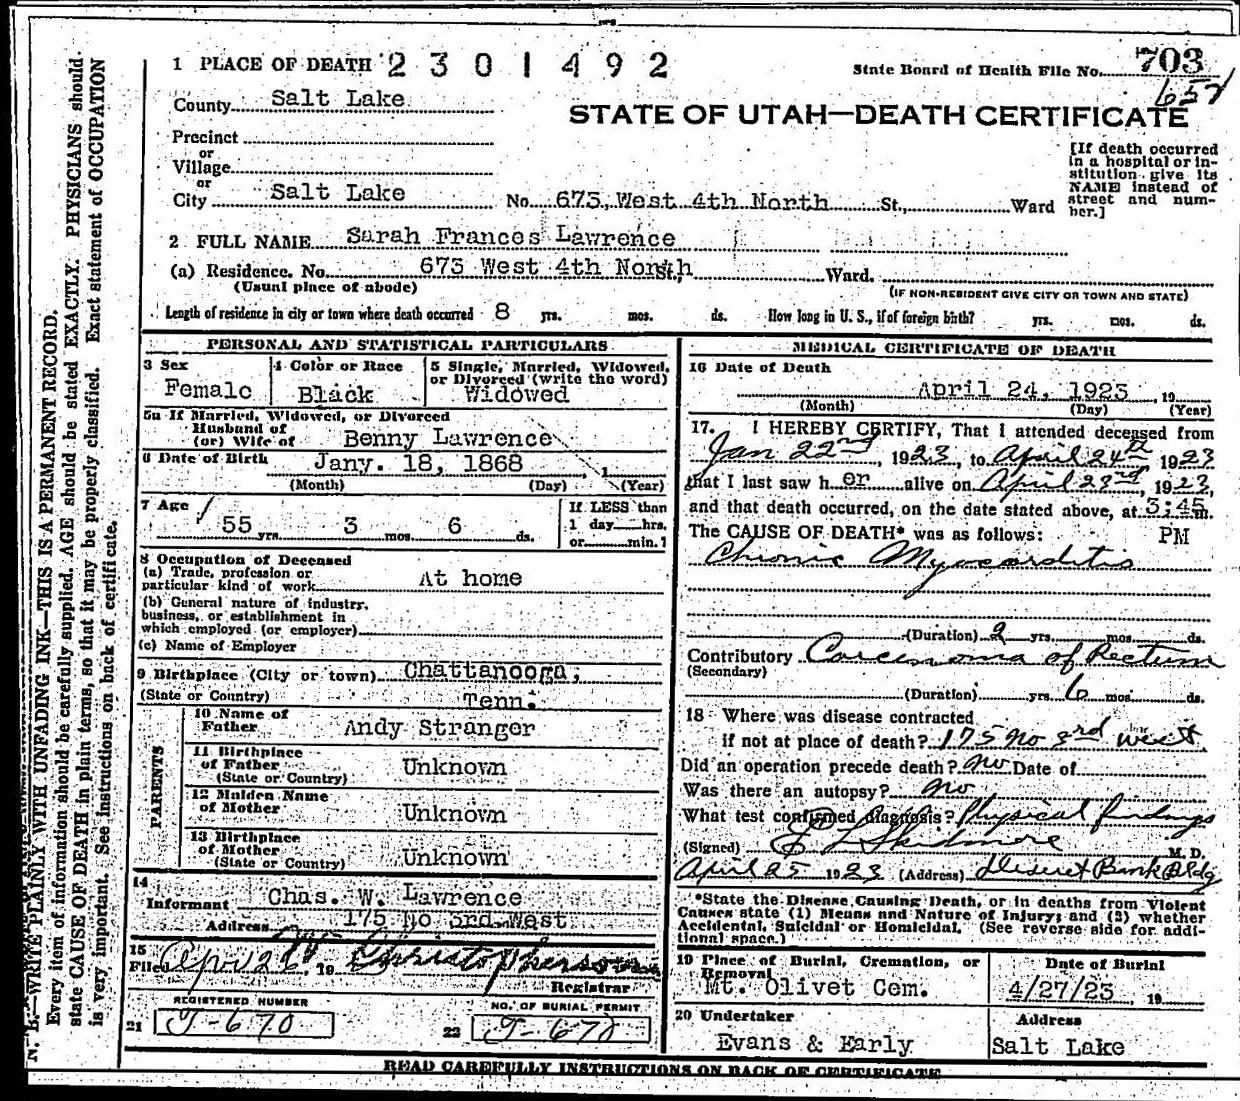 1 PLACE OF DEATH 2301492
State Board of Health File No. 703
657
County Salt Lake
STATE OF UTAH—DEATH CERTIFICATE
Precinct
or
Village
or
City Salt Lake No. 673 West 4th North St., Ward
[If death occurred
in a hospital or in-
stitution give its
NAME instead of
street and num-
ber.]
2 FULL NAME Sarah Frances Lawrence
(a) Residence. No. 673 West 4th North St., Ward.
(Usual place of abode)
(IF NON-RESIDENT GIVE CITY OR TOWN AND STATE)
Length of residence in city or town where death occurred 8 yrs. mos. ds. How long in U. S., if of foreign birth? yrs. mos. ds.
PERSONAL AND STATISTICAL PARTICULARS
3 Sex
Female
4 Color or Race
Black
5 Single, Married, Widowed,
or Divorced (write the word)
Widowed
5a If Married, Widowed, or Divorced
Husband of
(or) Wife of Benny Lawrence
6 Date of Birth Jany. 18, 1868 , 1
(Month) (Day) (Year)
7 Age
55 yrs. 3 mos. 6 ds.
If LESS than
1 day hrs.
or min.?
8 Occupation of Deceased
(a) Trade, profession or
particular kind of work At home
(b) General nature of industry,
business, or establishment in
which employed (or employer)
(c) Name of Employer
9 Birthplace (City or town) Chattanooga,
(State or Country) Tenn.
PARENTS
10 Name of
Father Andy Stranger
11 Birthplace
of Father Unknown
(State or Country)
12 Maiden Name
of Mother Unknown
13 Birthplace
of Mother Unknown
(State or Country)
14
Informant Chas. W. Lawrence
Address 175 No 3rd West
15
Filed Apr 26, 19 W Christopherson
Registrar
REGISTERED NUMBER
21 J-670
NO. OF BURIAL PERMIT
22 J-670
MEDICAL CERTIFICATE OF DEATH
16 Date of Death
April 24, 1923 , 19
(Month) (Day) (Year)
17. I HEREBY CERTIFY, That I attended deceased from
Jan 22nd, 1923, to April 24th 1923
that I last saw her alive on April 23rd, 1923,
and that death occurred, on the date stated above, at 3:45 m.
The CAUSE OF DEATH* was as follows: PM
Chronic Myocarditis
(Duration) 2 yrs. mos. ds.
Contributory Carcinoma of Rectum
(Secondary)
(Duration) yrs 6 mos. ds.
18 Where was disease contracted
if not at place of death? 175 No 3rd West
Did an operation precede death? No Date of
Was there an autopsy? No
What test confirmed diagnosis? Physical findings
(Signed) E L Skidmore M. D.
April 25 1923 (Address) Deseret Bank Bldg
*State the Disease Causing Death, or in deaths from Violent
Causes state (1) Means and Nature of Injury; and (2) whether
Accidental, Suicidal or Homicidal. (See reverse side for addi-
tional space.)
19 Place of Burial, Cremation, or
Removal
Mt. Olivet Cem.
Date of Burial
4/27/23, 19
20 Undertaker
Evans & Early
Address
Salt Lake
READ CAREFULLY INSTRUCTIONS ON BACK OF CERTIFICATE
N. B.—WRITE PLAINLY WITH UNFADING INK—THIS IS A PERMANENT RECORD.
Every item of information should be carefully supplied. AGE should be stated EXACTLY. PHYSICIANS should
state CAUSE OF DEATH in plain terms, so that it may be properly classified. Exact statement of OCCUPATION
is very important. See instructions on back of certificate.